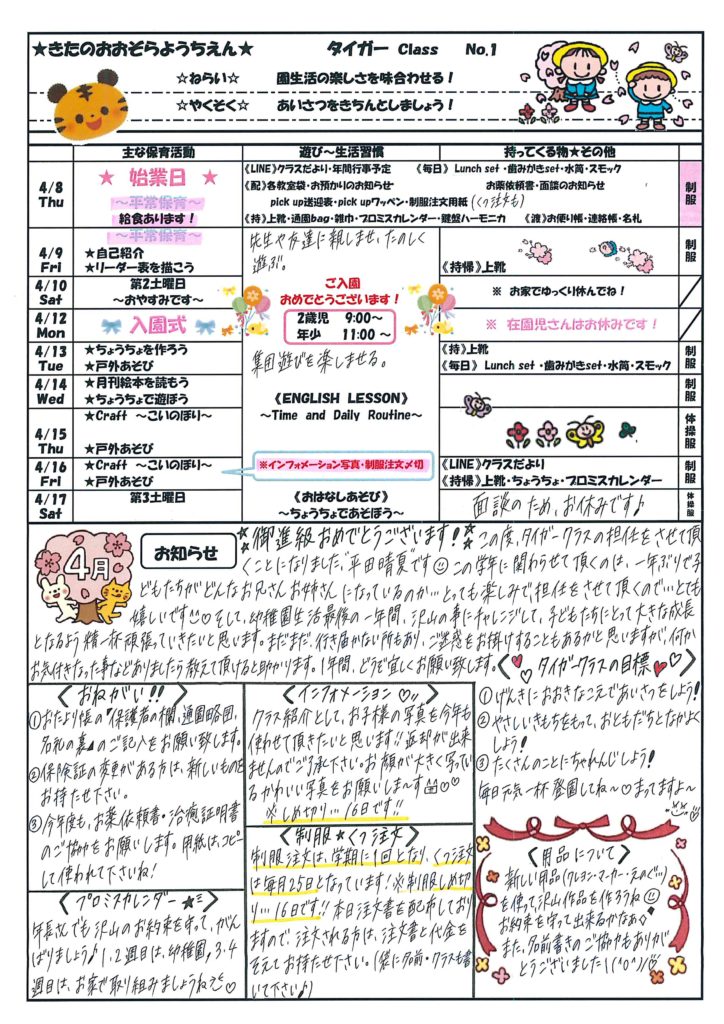 ★きたのおおぞらようちえん★ タイガー Class No.1
☆ねらい☆ 園生活の楽しさを味合わせる！
☆やくそく☆ あいさつをきちんとしましょう！
主な保育活動 遊び～生活習慣 持ってくる物★その他
4/8 Thu
★ 始業日 ★
～平常保育～
給食あります！
《LINE》クラスだより・年間行事予定 《毎日》 Lunch set ・歯みがきset・水筒・スモック
《配》各教室袋・お預かりのお知らせ お薬依頼書・面談のお知らせ
pick up送迎表・pick upワッペン・制服注文用紙(くつ注文も)
《持》上靴・通園bag・雑巾・プロミスカレンダー・鍵盤ハーモニカ 《渡》お便り帳・連絡帳・名札
制服
4/9 Fri
～平常保育～
★自己紹介
★リーダー表を描こう
先生や友達に親しませ、たのしく
遊ぶ。
《持帰》上靴
制服
4/10 Sat
第2土曜日
～おやすみです～
※ お家でゆっくり休んでね！
4/12 Mon
入園式
ご入園
おめでとうございます！
2歳児 9:00～
年少 11:00 ～
※ 在園児さんはお休みです！
4/13 Tue
★ちょうちょを作ろう
★戸外あそび
集団遊びを楽しませる。
《持》上靴
《毎日》 Lunch set ・歯みがきset・水筒・スモック
制服
4/14 Wed
★月刊絵本を読もう
★ちょうちょで遊ぼう
《ENGLISH LESSON》
～Time and Daily Routine～
制服
4/15 Thu
★Craft ～こいのぼり～
★戸外あそび
体操服
4/16 Fri
★Craft ～こいのぼり～
★戸外あそび
※インフォメーション写真・制服注文〆切
《LINE》クラスだより
《持帰》上靴・ちょうちょ・プロミスカレンダー
制服
4/17 Sat
第3土曜日
《おはなしあそび》
～ちょうちょであそぼう～
面談のため、お休みです♪
体操服
4月
お知らせ
御進級おめでとうございます！この度、タイガークラスの担任をさせて頂
くことになりました"平田晴夏"です この学年に関わらせて頂くのは、一年ぶりで子
どもたちがどんなお兄さんお姉さんになっているのか…とっても楽しみで、担任をさせて頂くので…とても
嬉しいです♡そして、幼稚園生活最後の一年間、沢山の事にチャレンジして、子どもたちにとって大きな成長
となるよう精一杯頑張っていきたいと思います。まだまだ、行き届かない所もあり、ご迷惑をお掛けすることもあるかと思いますが、何か
お気付きなった事などありましたら教えて頂けると助かります。1年間、どうぞ宜しくお願い致します。
〈おねがい!!〉
①おたより帳の"保護者の欄、通園略図、
名札の裏"のご記入をお願い致します。
②保険証の変更がある方は、新しいものを
お持たせ下さい。
③今年度も、お薬依頼書・治癒証明書
のご協力をお願いします。用紙は、コピー
して使われて下さいね！
〈プロミスカレンダー★〉
年長さんでも沢山のお約束を守って、がん
ばりましょう♪1、2週目は、幼稚園、3、4
週目は、お家で取り組みましょうね♡
〈インフォメーション♡〉
クラス紹介として、お子様の写真を今年も
使わせて頂きたいと思います!!返却が出来
ませんのでご了承下さい。お顔が大きく写ってい
るかわいい写真をお願いしま〜す♡♡
※しめ切り…16日です!!
〈制服★くつ注文〉
制服注文は、学期に1回となり、くつ注文
は毎月25日となっています!※制服しめ切
り…16日です!!本日注文書を配布しており
ますので、注文される方は、注文書と代金を
そえてお持たせ下さい。(袋に名前・クラスも書
いて下さい♪)
〈♡タイガークラスの目標♡〉
①げんきにおおきなこえであいさつをしよう！
②やさしいきもちをもって、おともだちとなかよく
しよう！
③たくさんのことにちゃれんじしよう！
毎日元気一杯登園してね〜♡まってますよ〜
〈用品について〉
新しい用品(クレヨン・マーカー・えのぐ…)
を使って沢山作品を作ろうね
お約束を守って出来るかなぁ◇
また、名前書きのご協力もありが
とうございました!(^o^)/♡